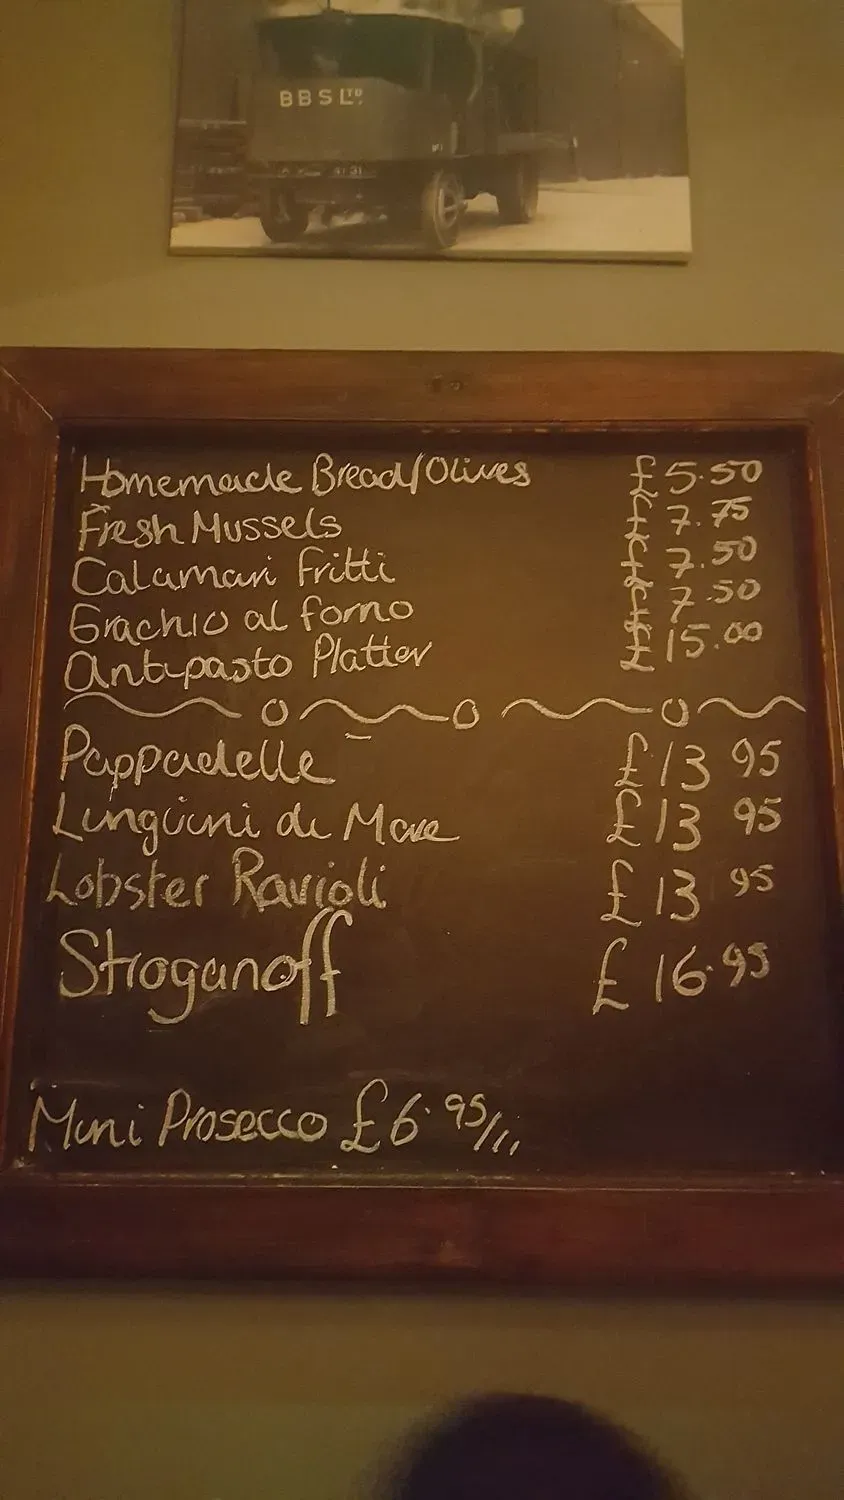 BBS LTD.
Homemade Bread/Olives £5.50
Fresh Mussels £7.75
Calamari Fritti £7.50
Grachio al forno £7.50
Antipasto Platter £15.00
Pappadelle £13 95
Linguini di Mare £13 95
Lobster Ravioli £13 95
Stroganoff £16.95
Mini Prosecco £6.95